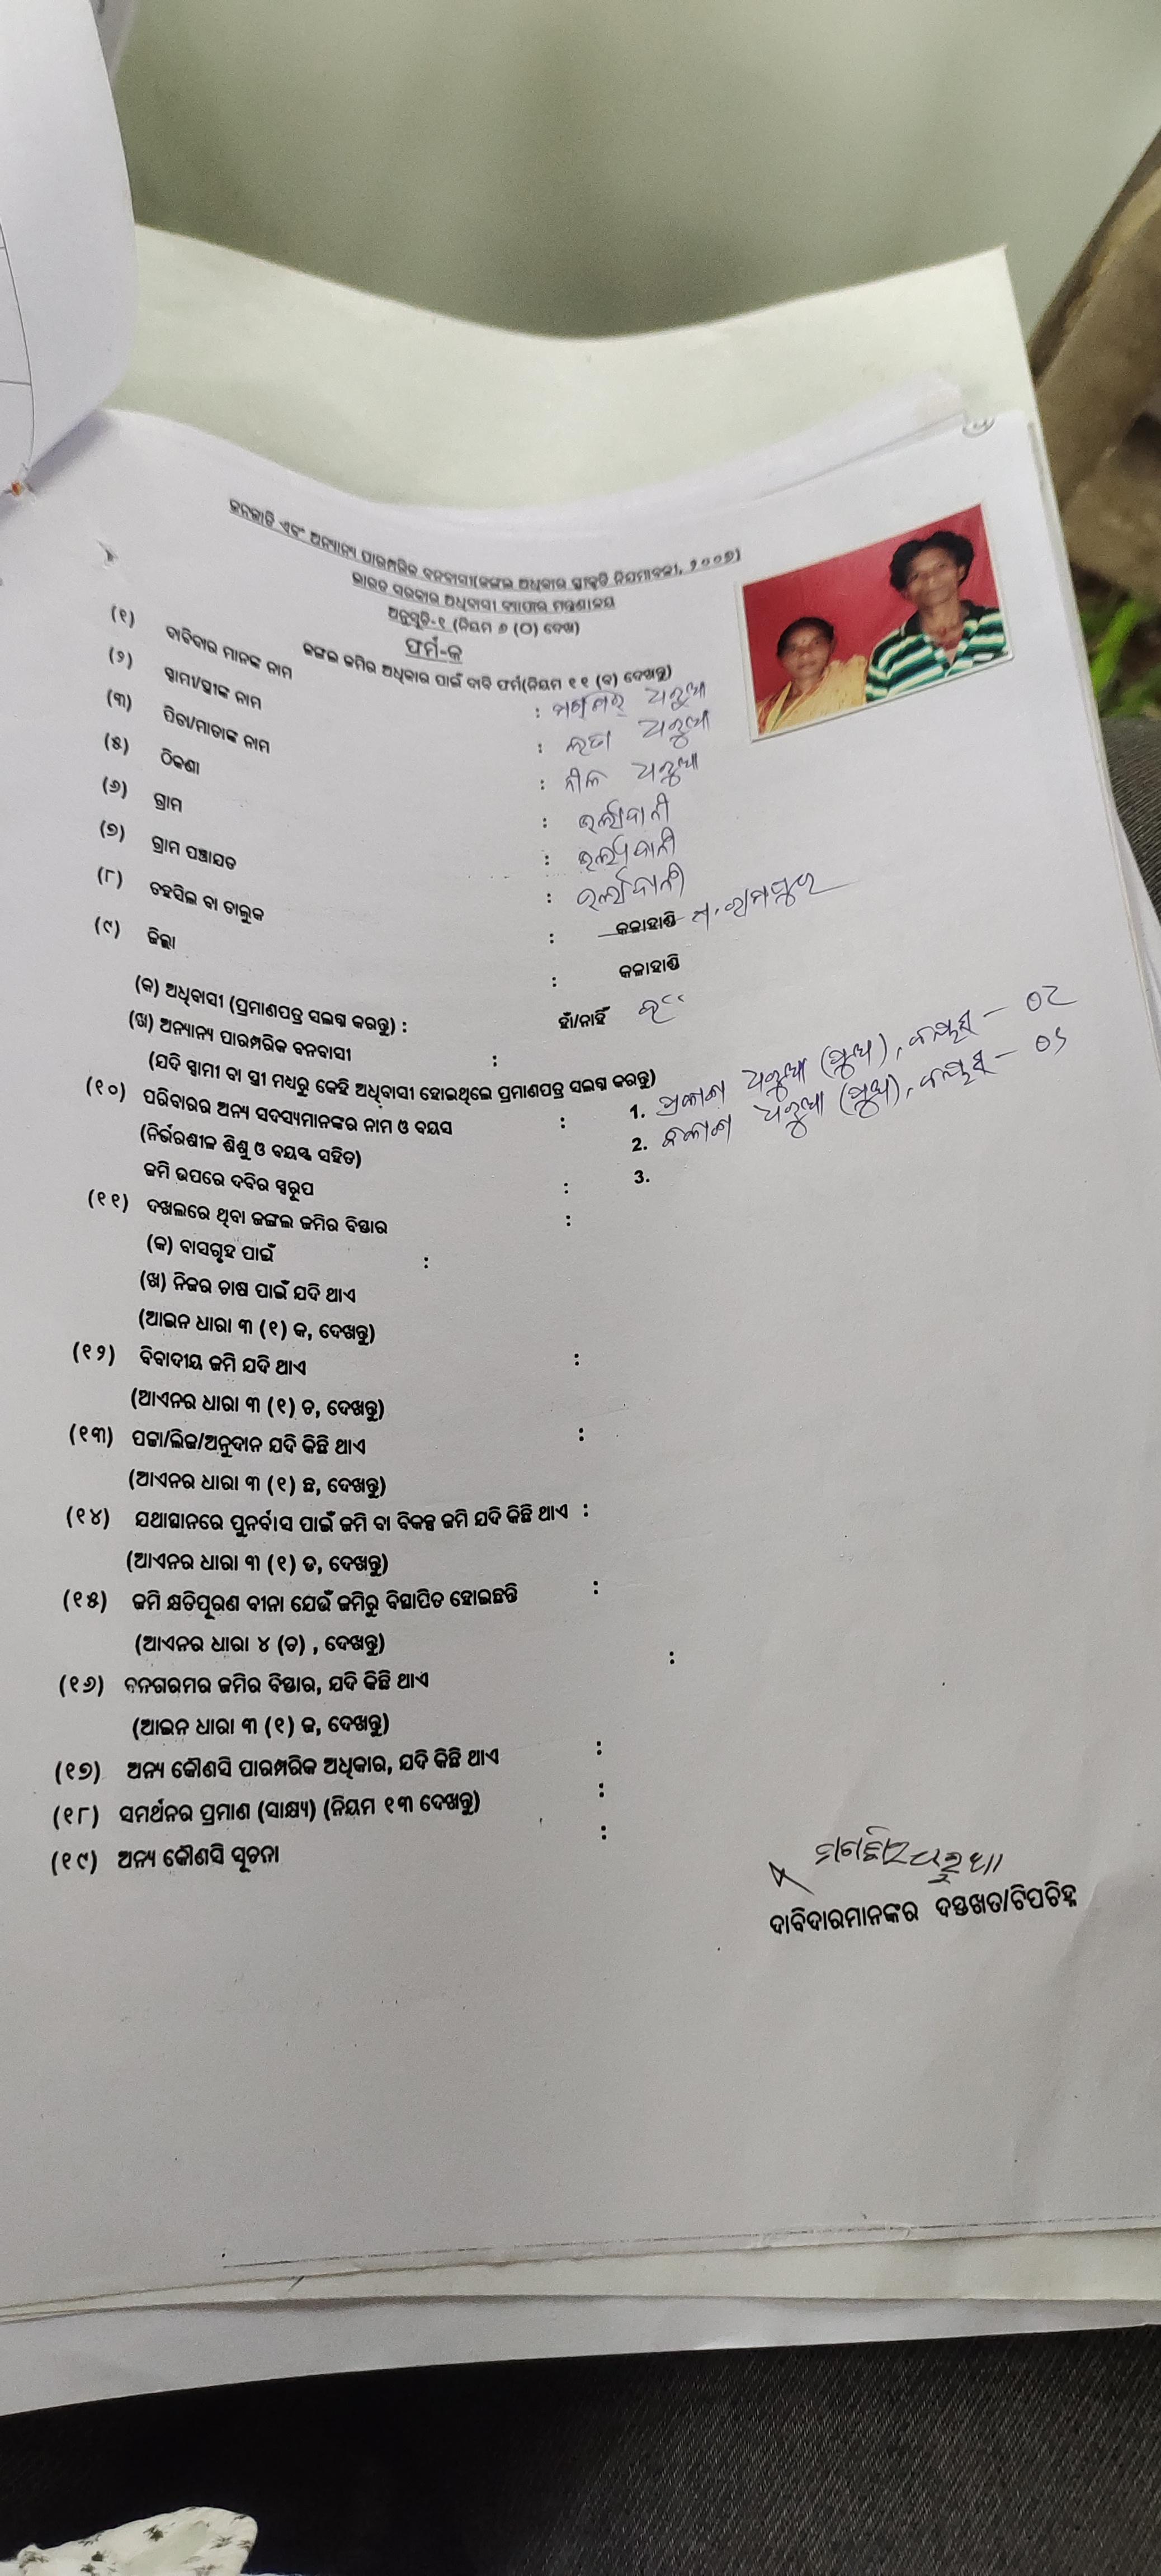 ଜନଜାତି ଏବଂ ଅନ୍ୟାନ୍ୟ ପାରମ୍ପରିକ ବନବାସୀ(ଜଙ୍ଗଲ ଅଧିକାର ସ୍ୱୀକୃତି ନିୟମାବଳୀ, ୨୦୦୭)
ଭାରତ ସରକାର ଅଧିବାସୀ ବ୍ୟାପାର ମନ୍ତ୍ରଣାଳୟ
ଅନୁସୂଚି-୧ (ନିୟମ ୬ (ଠ) ଦେଖ)
ଫର୍ମ-କ
ଜଙ୍ଗଲ ଜମିର ଅଧିକାର ପାଇଁ ଦାବି ଫର୍ମ(ନିୟମ ୧୧ (କ) ଦେଖନ୍ତୁ)
(୧) ଦାବିଦାର ମାନଙ୍କ ନାମ : ପରୁଆ
(୨) ସ୍ୱାମୀ/ସ୍ତ୍ରୀଙ୍କ ନାମ : ଲତା ପରୁଆ
(୩) ପିତା/ମାତାଙ୍କ ନାମ : ନୀଳ ପରୁଆ
(୫) ଠିକଣା :
(୬) ଗ୍ରାମ :
(୭) ଗ୍ରାମ ପଞ୍ଚାୟତ :
(୮) ତହସିଲ ବା ତାଲୁକ : କଳାହାଣ୍ଡି ଥ.ରାମପୁର
(୯) ଜିଲ୍ଲା : କଳାହାଣ୍ଡି
(କ) ଅଧିବାସୀ (ପ୍ରମାଣପତ୍ର ସଲଗ୍ନ କରନ୍ତୁ) : ହଁ/ନାହିଁ ହଁ
(ଖ) ଅନ୍ୟାନ୍ୟ ପାରମ୍ପରିକ ବନବାସୀ :
(ଯଦି ସ୍ୱାମୀ ବା ସ୍ତ୍ରୀ ମଧ୍ୟରୁ କେହି ଅଧିବାସୀ ହୋଇଥିଲେ ପ୍ରମାଣପତ୍ର ସଲଗ୍ନ କରନ୍ତୁ)
(୧୦) ପରିବାରର ଅନ୍ୟ ସଦସ୍ୟମାନଙ୍କର ନାମ ଓ ବୟସ : 1. ପ୍ରକାଶ ପରୁଆ (ପୁଅ), ବୟସ -
(ନିର୍ଭରଶୀଳ ଶିଶୁ ଓ ବୟସ୍କ ସହିତ) 2. ବିକାଶ ପରୁଆ (ପୁଅ), ବୟସ -
ଜମି ଉପରେ ଦବିର ସ୍ୱରୂପ : 3.
(୧୧) ଦଖଲରେ ଥିବା ଜଙ୍ଗଲ ଜମିର ବିସ୍ତାର :
(କ) ବାସଗୃହ ପାଇଁ :
(ଖ) ନିଜର ଚାଷ ପାଇଁ ଯଦି ଥାଏ
(ଆଇନ ଧାରା ୩ (୧) କ, ଦେଖନ୍ତୁ)
(୧୨) ବିବାଦୀୟ ଜମି ଯଦି ଥାଏ :
(ଆଏନର ଧାରା ୩ (୧) ଚ, ଦେଖନ୍ତୁ)
(୧୩) ପଟ୍ଟା/ଲିଜ/ଅନୁଦାନ ଯଦି କିଛି ଥାଏ :
(ଆଏନର ଧାରା ୩ (୧) ଛ, ଦେଖନ୍ତୁ)
(୧୪) ଯଥାସ୍ଥାନରେ ପୁନର୍ବାସ ପାଇଁ ଜମି ବା ବିକଳ୍ପ ଜମି ଯଦି କିଛି ଥାଏ :
(ଆଏନର ଧାରା ୩ (୧) ଡ, ଦେଖନ୍ତୁ)
(୧୫) ଜମି କ୍ଷତିପୂରଣ ବୀନା ଯେଉଁ ଜମିରୁ ବିସ୍ଥାପିତ ହୋଇଛନ୍ତି :
(ଆଏନର ଧାରା ୪ (ଚ) , ଦେଖନ୍ତୁ)
(୧୬) ବନଗରମର ଜମିର ବିସ୍ତାର, ଯଦି କିଛି ଥାଏ :
(ଆଇନ ଧାରା ୩ (୧) ଜ, ଦେଖନ୍ତୁ)
(୧୭) ଅନ୍ୟ କୌଣସି ପାରମ୍ପରିକ ଅଧିକାର, ଯଦି କିଛି ଥାଏ :
(୧୮) ସମର୍ଥନର ପ୍ରମାଣ (ସାକ୍ଷ୍ୟ) (ନିୟମ ୧୩ ଦେଖନ୍ତୁ) :
(୧୯) ଅନ୍ୟ କୌଣସି ସୂଚନା :
ଦାବିଦାରମାନଙ୍କର ଦସ୍ତଖତ/ଟିପଚିହ୍ନ